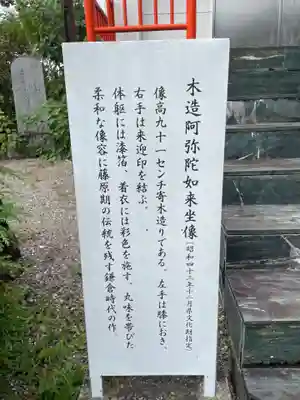 木造阿弥陀如来坐像(昭和四十三年十二月県文化財指定)
像高九十一センチ寄木造りである。左手は膝におき、
右手は来迎印を結ぶ。
体躯には漆箔、着衣には彩色を施す、丸味を帯びた
柔和な像容に藤原期の伝統を残す鎌倉時代の作。